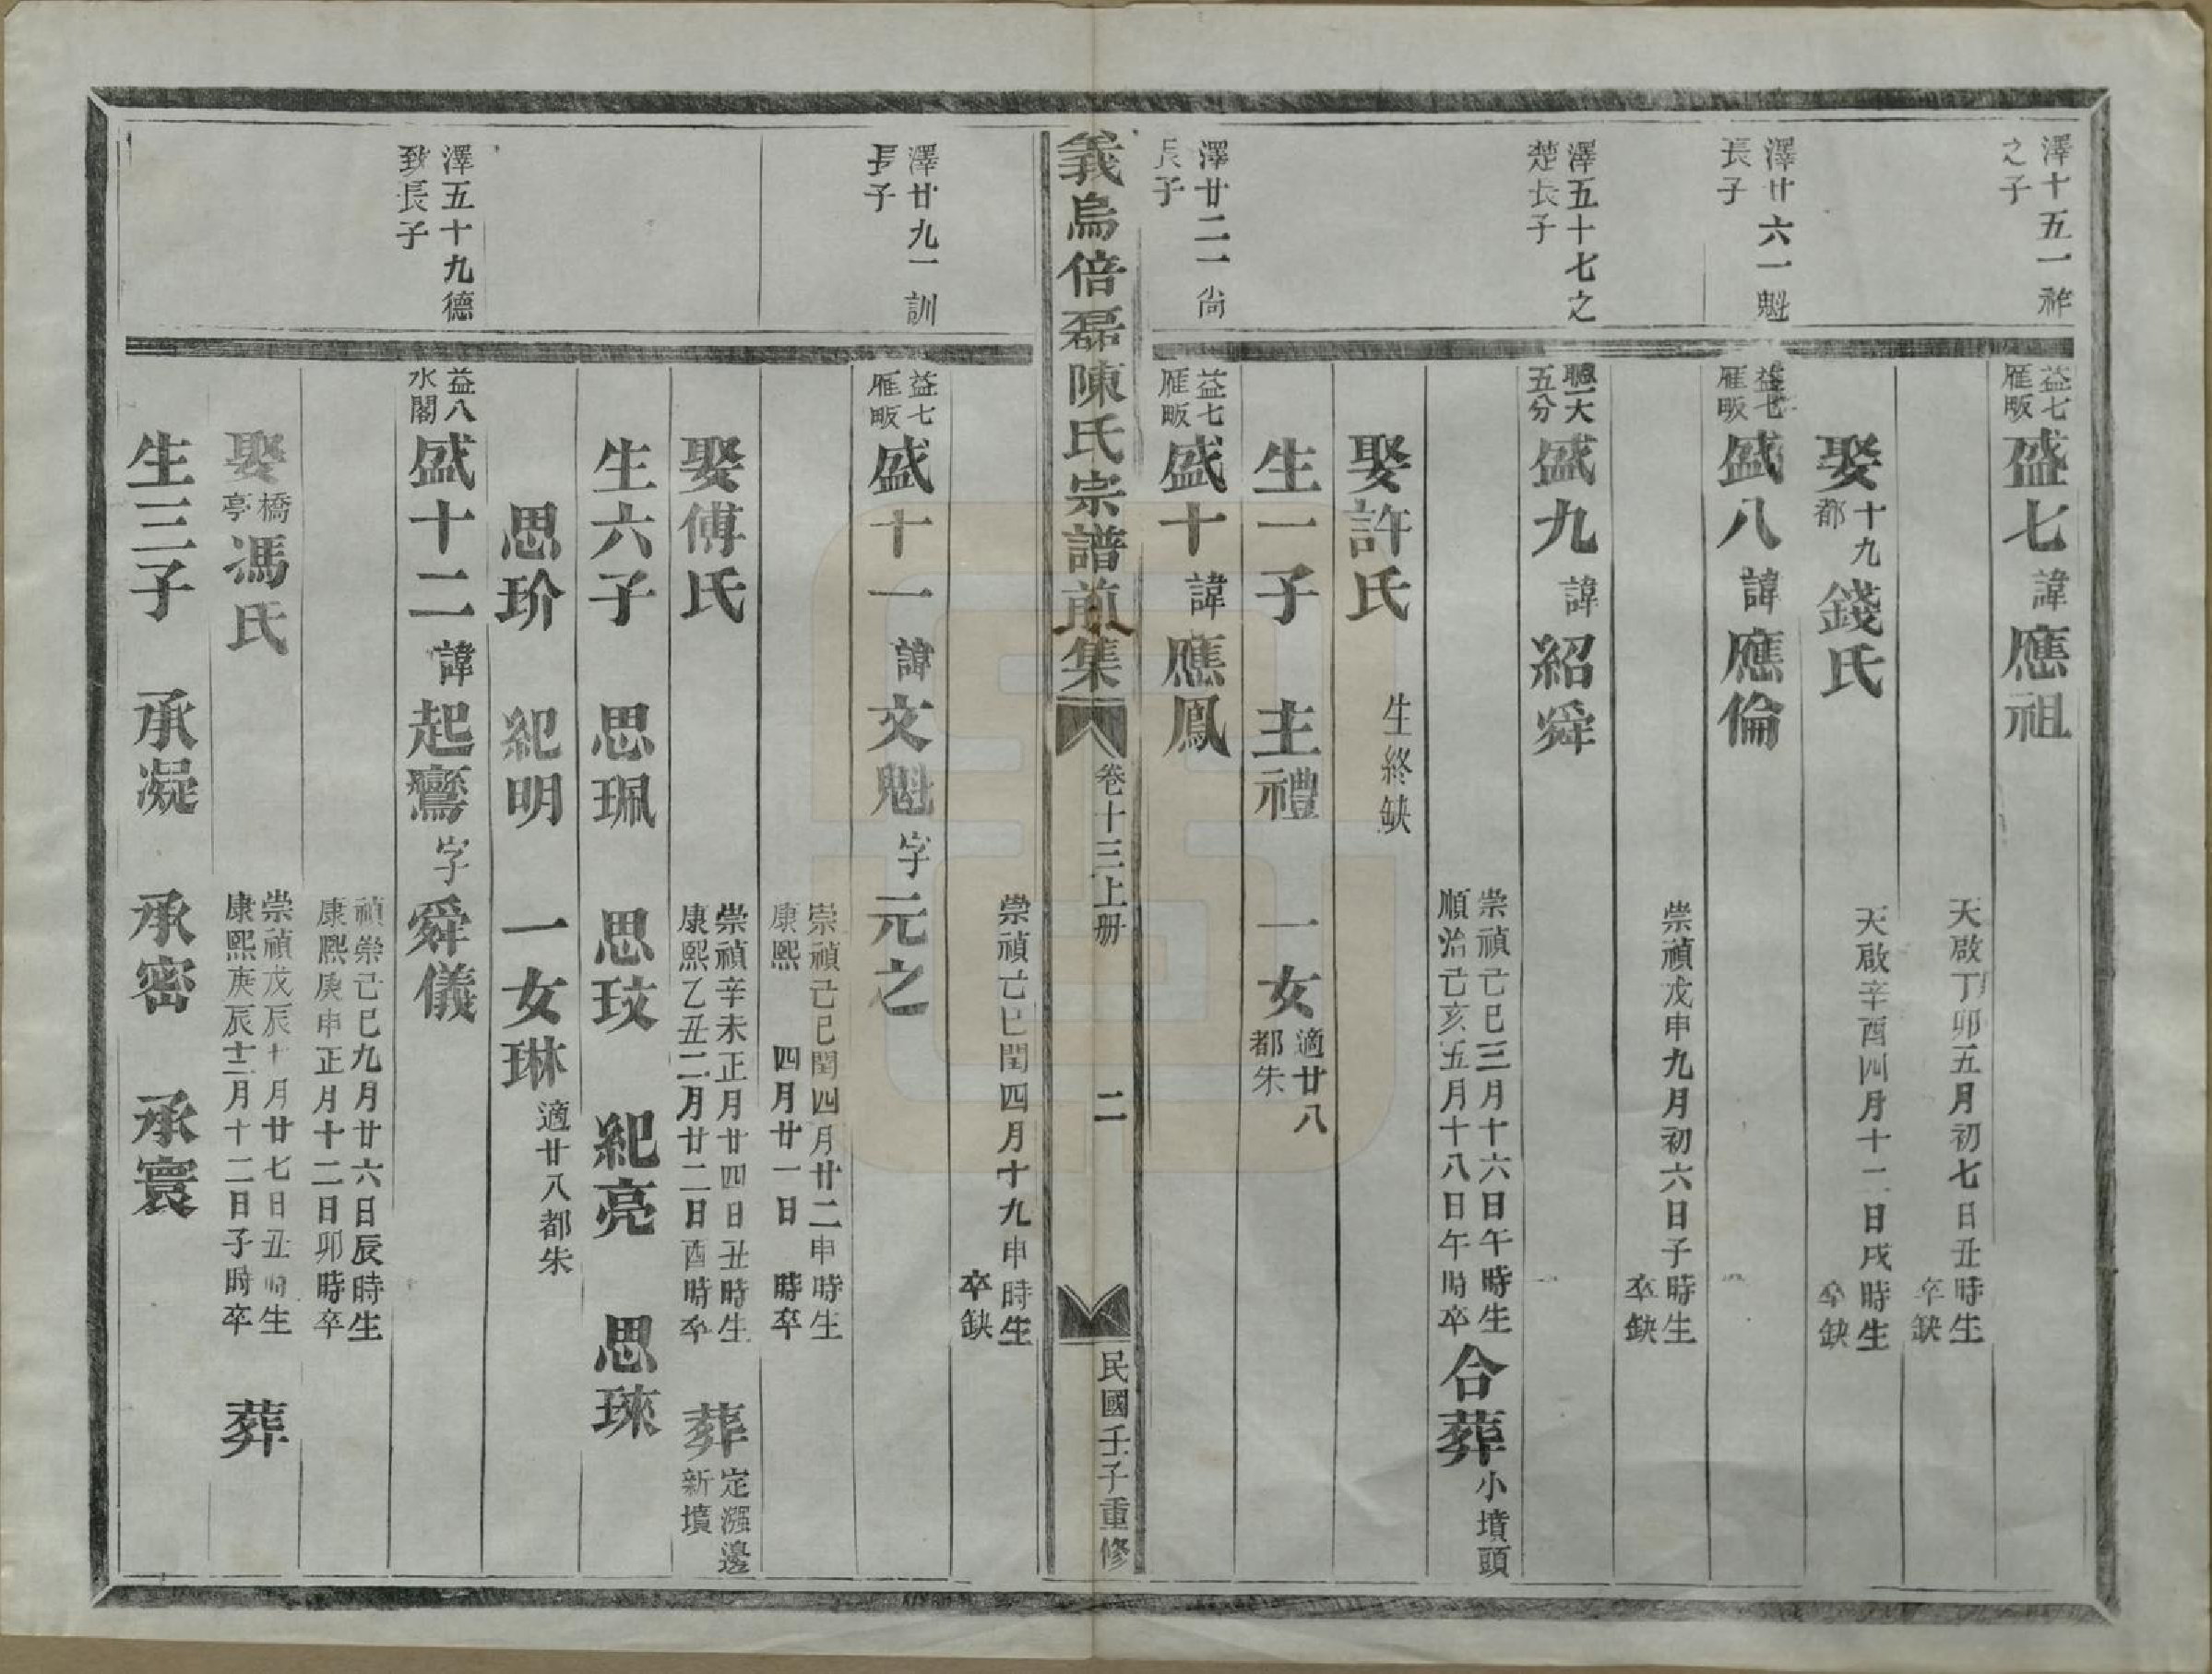 澤十五一祚
之子
益七
雁畈
盛七諱應祖
天啟丁卯五月初七日丑時生
卒缺
娶十九都錢氏
天啟辛酉四月十二日戌時生
卒缺
澤廿六一魁
長子
益七
雁畈
盛八諱應倫
崇禎戊申九月初六日子時生
卒缺
澤五十七之
楚長子
聰一大
五分
盛九諱紹舜
崇禎己巳三月十六日午時生
順治己亥五月十八日午時卒
合葬小墳頭
娶許氏 生終缺
生一子 主禮 一女適廿八都朱
澤廿二一尚
長子
益七
雁畈
盛十諱應鳳
義烏倍磊陳氏宗譜前集 卷十三上册 二 民國壬子重修
崇禎己巳閏四月十九申時生
卒缺
澤廿九一訓
長子
益七
雁畈
盛十一諱文魁字元之
崇禎己巳閏四月廿二申時生
康熙 四月廿一日 時卒
娶傅氏
崇禎辛未正月廿四日丑時生
康熙乙丑二月廿二日酉時卒
葬定溺邊新墳
生六子 思珮 思玟 紀亮 思琜
思玠 紀明 一女琳適廿八都朱
澤五十九德
致長子
益八
水閣
盛十二諱起鸞字舜儀
禎崇己巳九月廿六日辰時生
康熙庚申正月十二日卯時卒
娶橋亭馮氏
崇禎戊辰十月廿七日丑時生
康熙庚辰十二月十二日子時卒
葬
生三子 承凝 承密 承寰